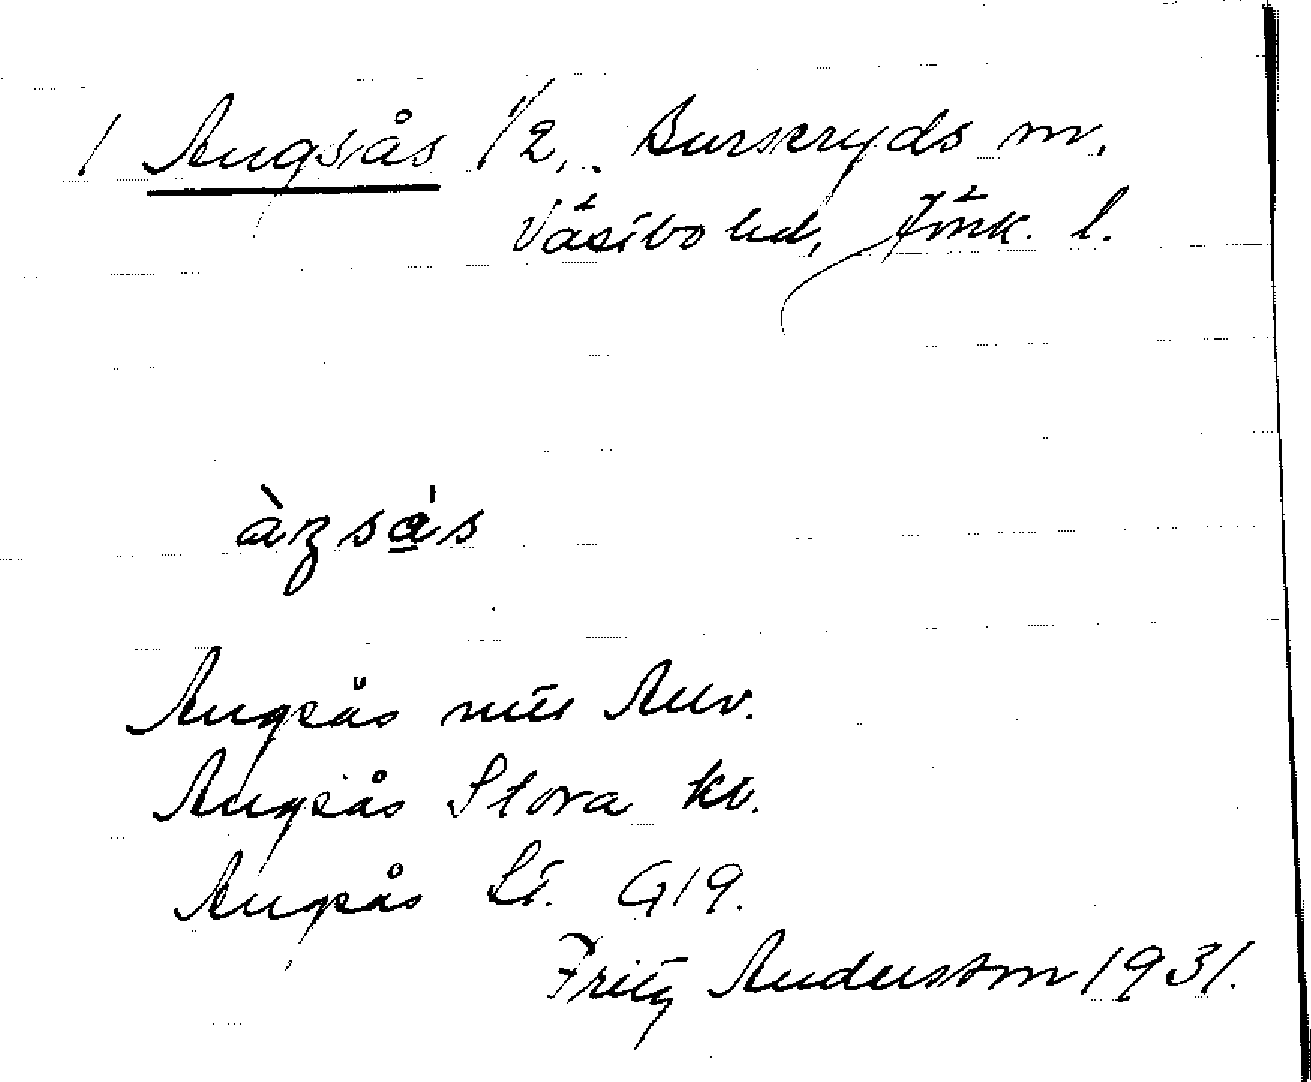 1 Angsås 1/2, Burseryds sn,
Västbo hd, Jönk. l.
àŋsås
Angsås
Angsås Stora
Angsås St. G19.
Fritz Andersson 1931.